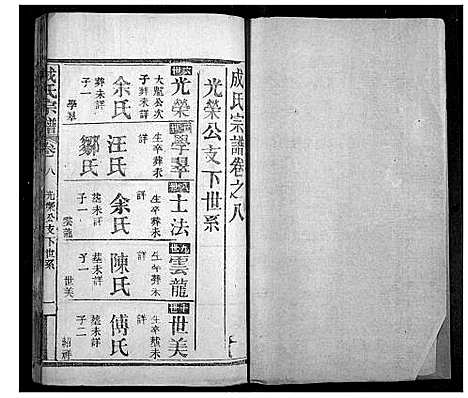 成氏宗譜卷之八
光榮公支下世系
六世
光榮
大魁公次
子葬未詳
余氏
葬未詳
子一
學翠
七世
學翠
生卒葬未
詳
汪氏
鄒氏
八世
士法
生卒葬未
詳
余氏
墓未詳
子一
雲龍
九世
雲龍
生卒葬未
詳
陳氏
墓未詳
子一
世美
十世
世美
生卒墓未
詳
傅氏
墓未詳
子二
紹祥
成氏宗譜
卷八
光榮公支下世系
一